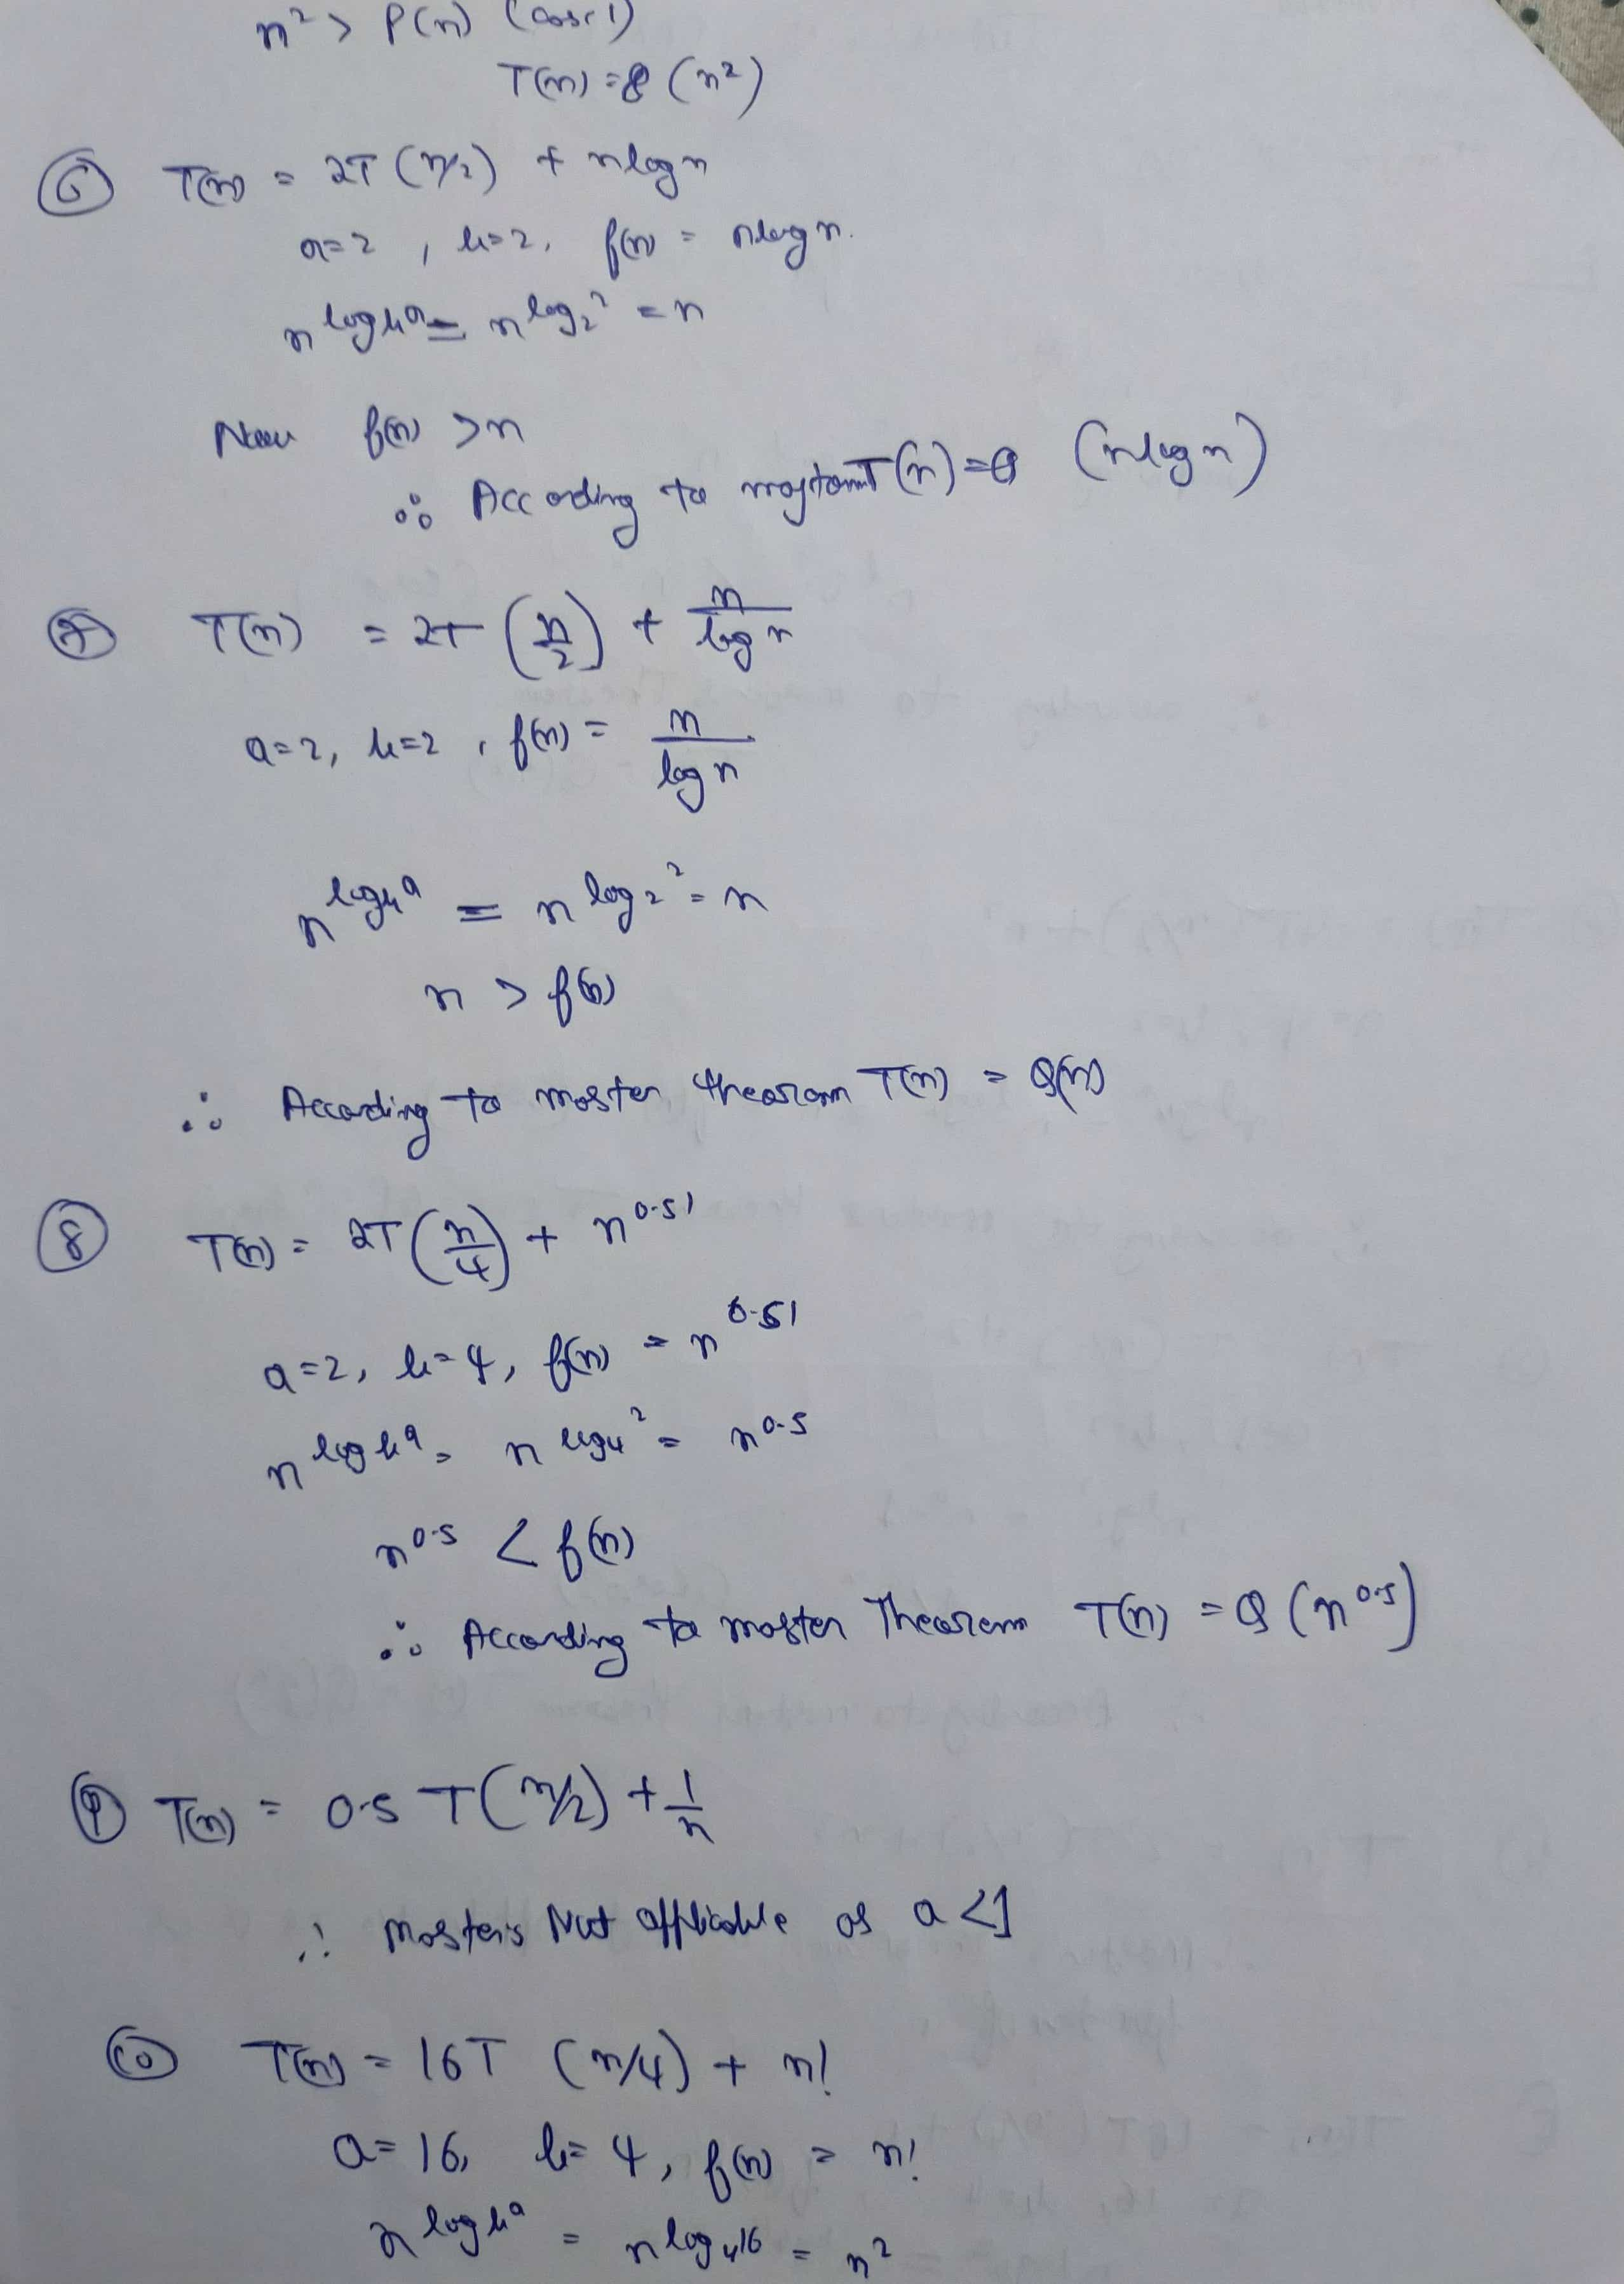 n² > f(n) (case 1)
T(n) = θ (n²)
⑥ T(n) = 2T (n/2) + nlogn
a=2 , b=2, f(n) = nlogn.
n^log_b^a = n^log_2^2 = n
Now f(n) > n
∴ According to T(n) = θ (nlogn)
⑦ T(n) = 2T (n/2) + n/logn
a=2, b=2 , f(n) = n/logn
n^log_b^a = n^log_2^2 = n
n > f(n)
∴ According to master thearam T(n) = θ(n)
⑧ T(n) = 2T (n/4) + n^0.51
a=2, b=4, f(n) = n^0.51
n^log_b^a = n^log_4^2 = n^0.5
n^0.5 < f(n)
∴ According to master Thearem T(n) = θ (n^0.5)
⑨ T(n) = 0.5 T(n/2) + 1/n
∴ Master's Not applicable as a<1
⑩ T(n) = 16T (n/4) + n!
a=16, b=4, f(n) = n!
n^log_b^a = n^log_4^16 = n²